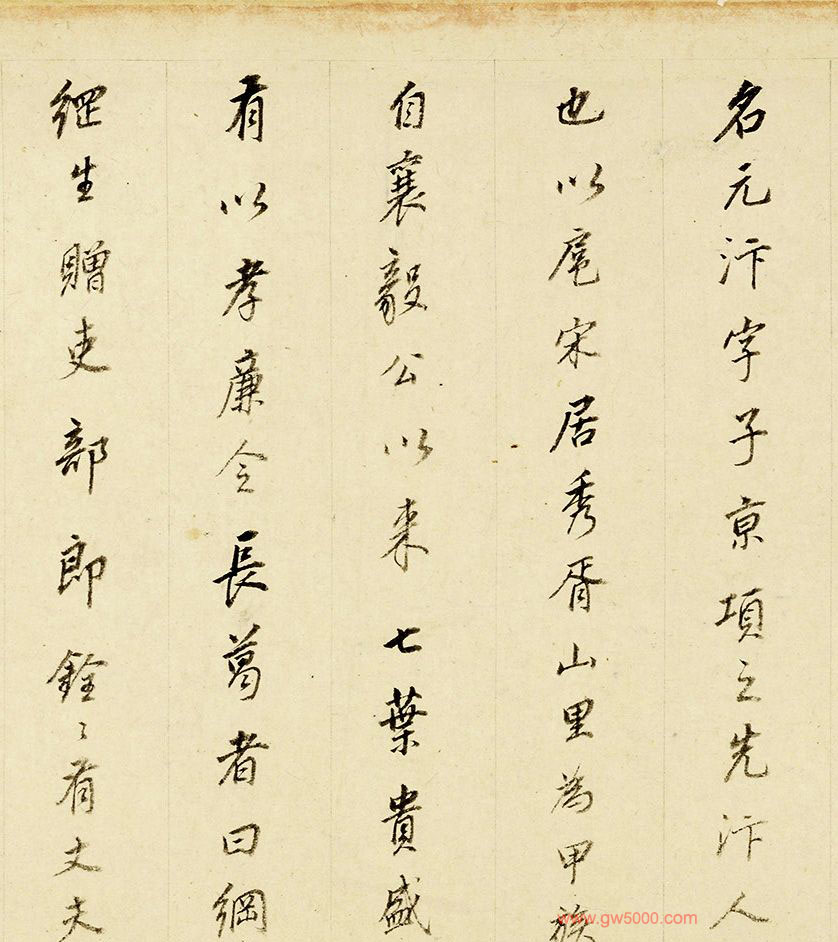 名元汴字子京項之先汴人
也以扈宋居秀胥山里為甲族
自襄毅公以来七葉貴盛
有以孝廉令長葛者曰綱
綱生贈吏部郎銓〻有丈夫
www.gw5000.com